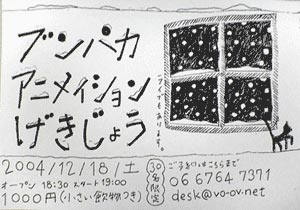 ブンパカ
アニメイション
げきじょう
ライブもあります。
2004/12/18/土
オープン 18:30 スタート 19:00
1000円(小さい飲物つき)
30名限定
ご予約はこちらまで
06 6764 7371
desk@vo-ov.net